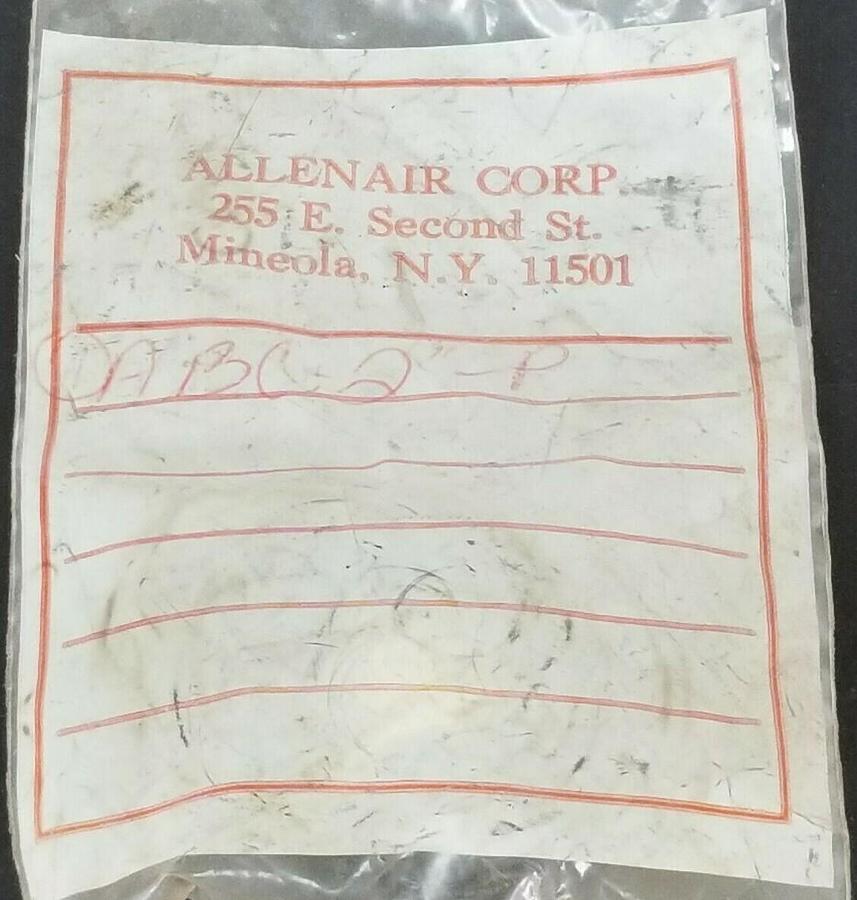 ALLENAIR CORP.
255 E. Second St.
Mineola, N.Y. 11501
① ABC-2"-P